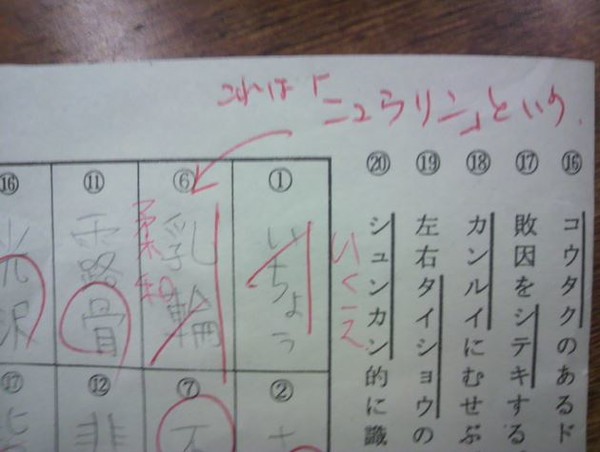 これは「ニュウリン」という.
⑯ コウタクのあるド
⑰ 敗因をシテキする
⑱ カンルイにむせぶ
⑲ 左右タイショウの
⑳ シュンカン的に識
① いちょう
いくえ
⑥ 乳輪
柔和
⑪ 露骨
⑯ 光沢
②
⑦ 不
⑫ 非
⑰